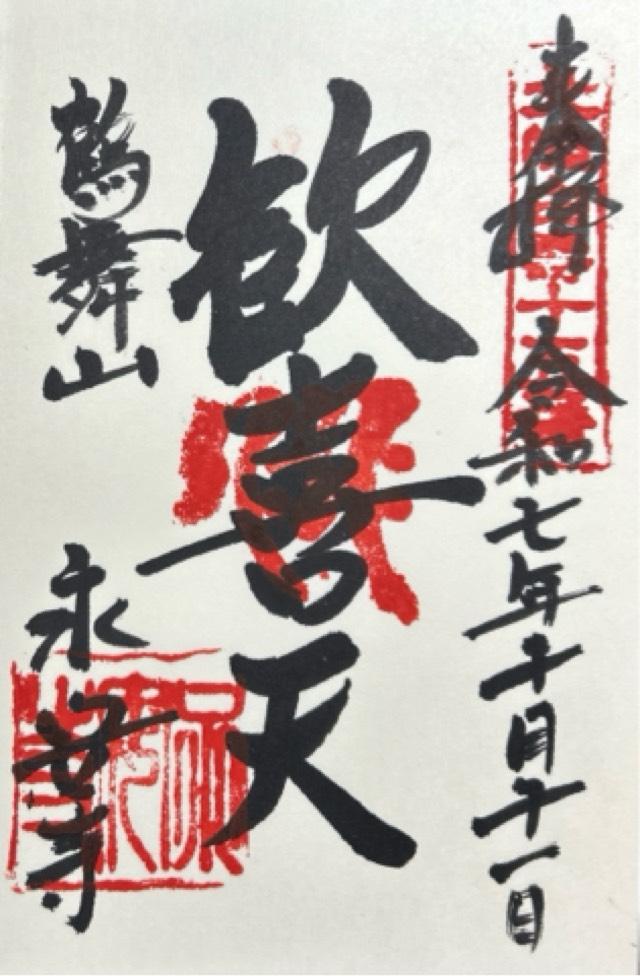 奉拝 令和七年十月十一日
歓喜天
鶴舞山
永 寺